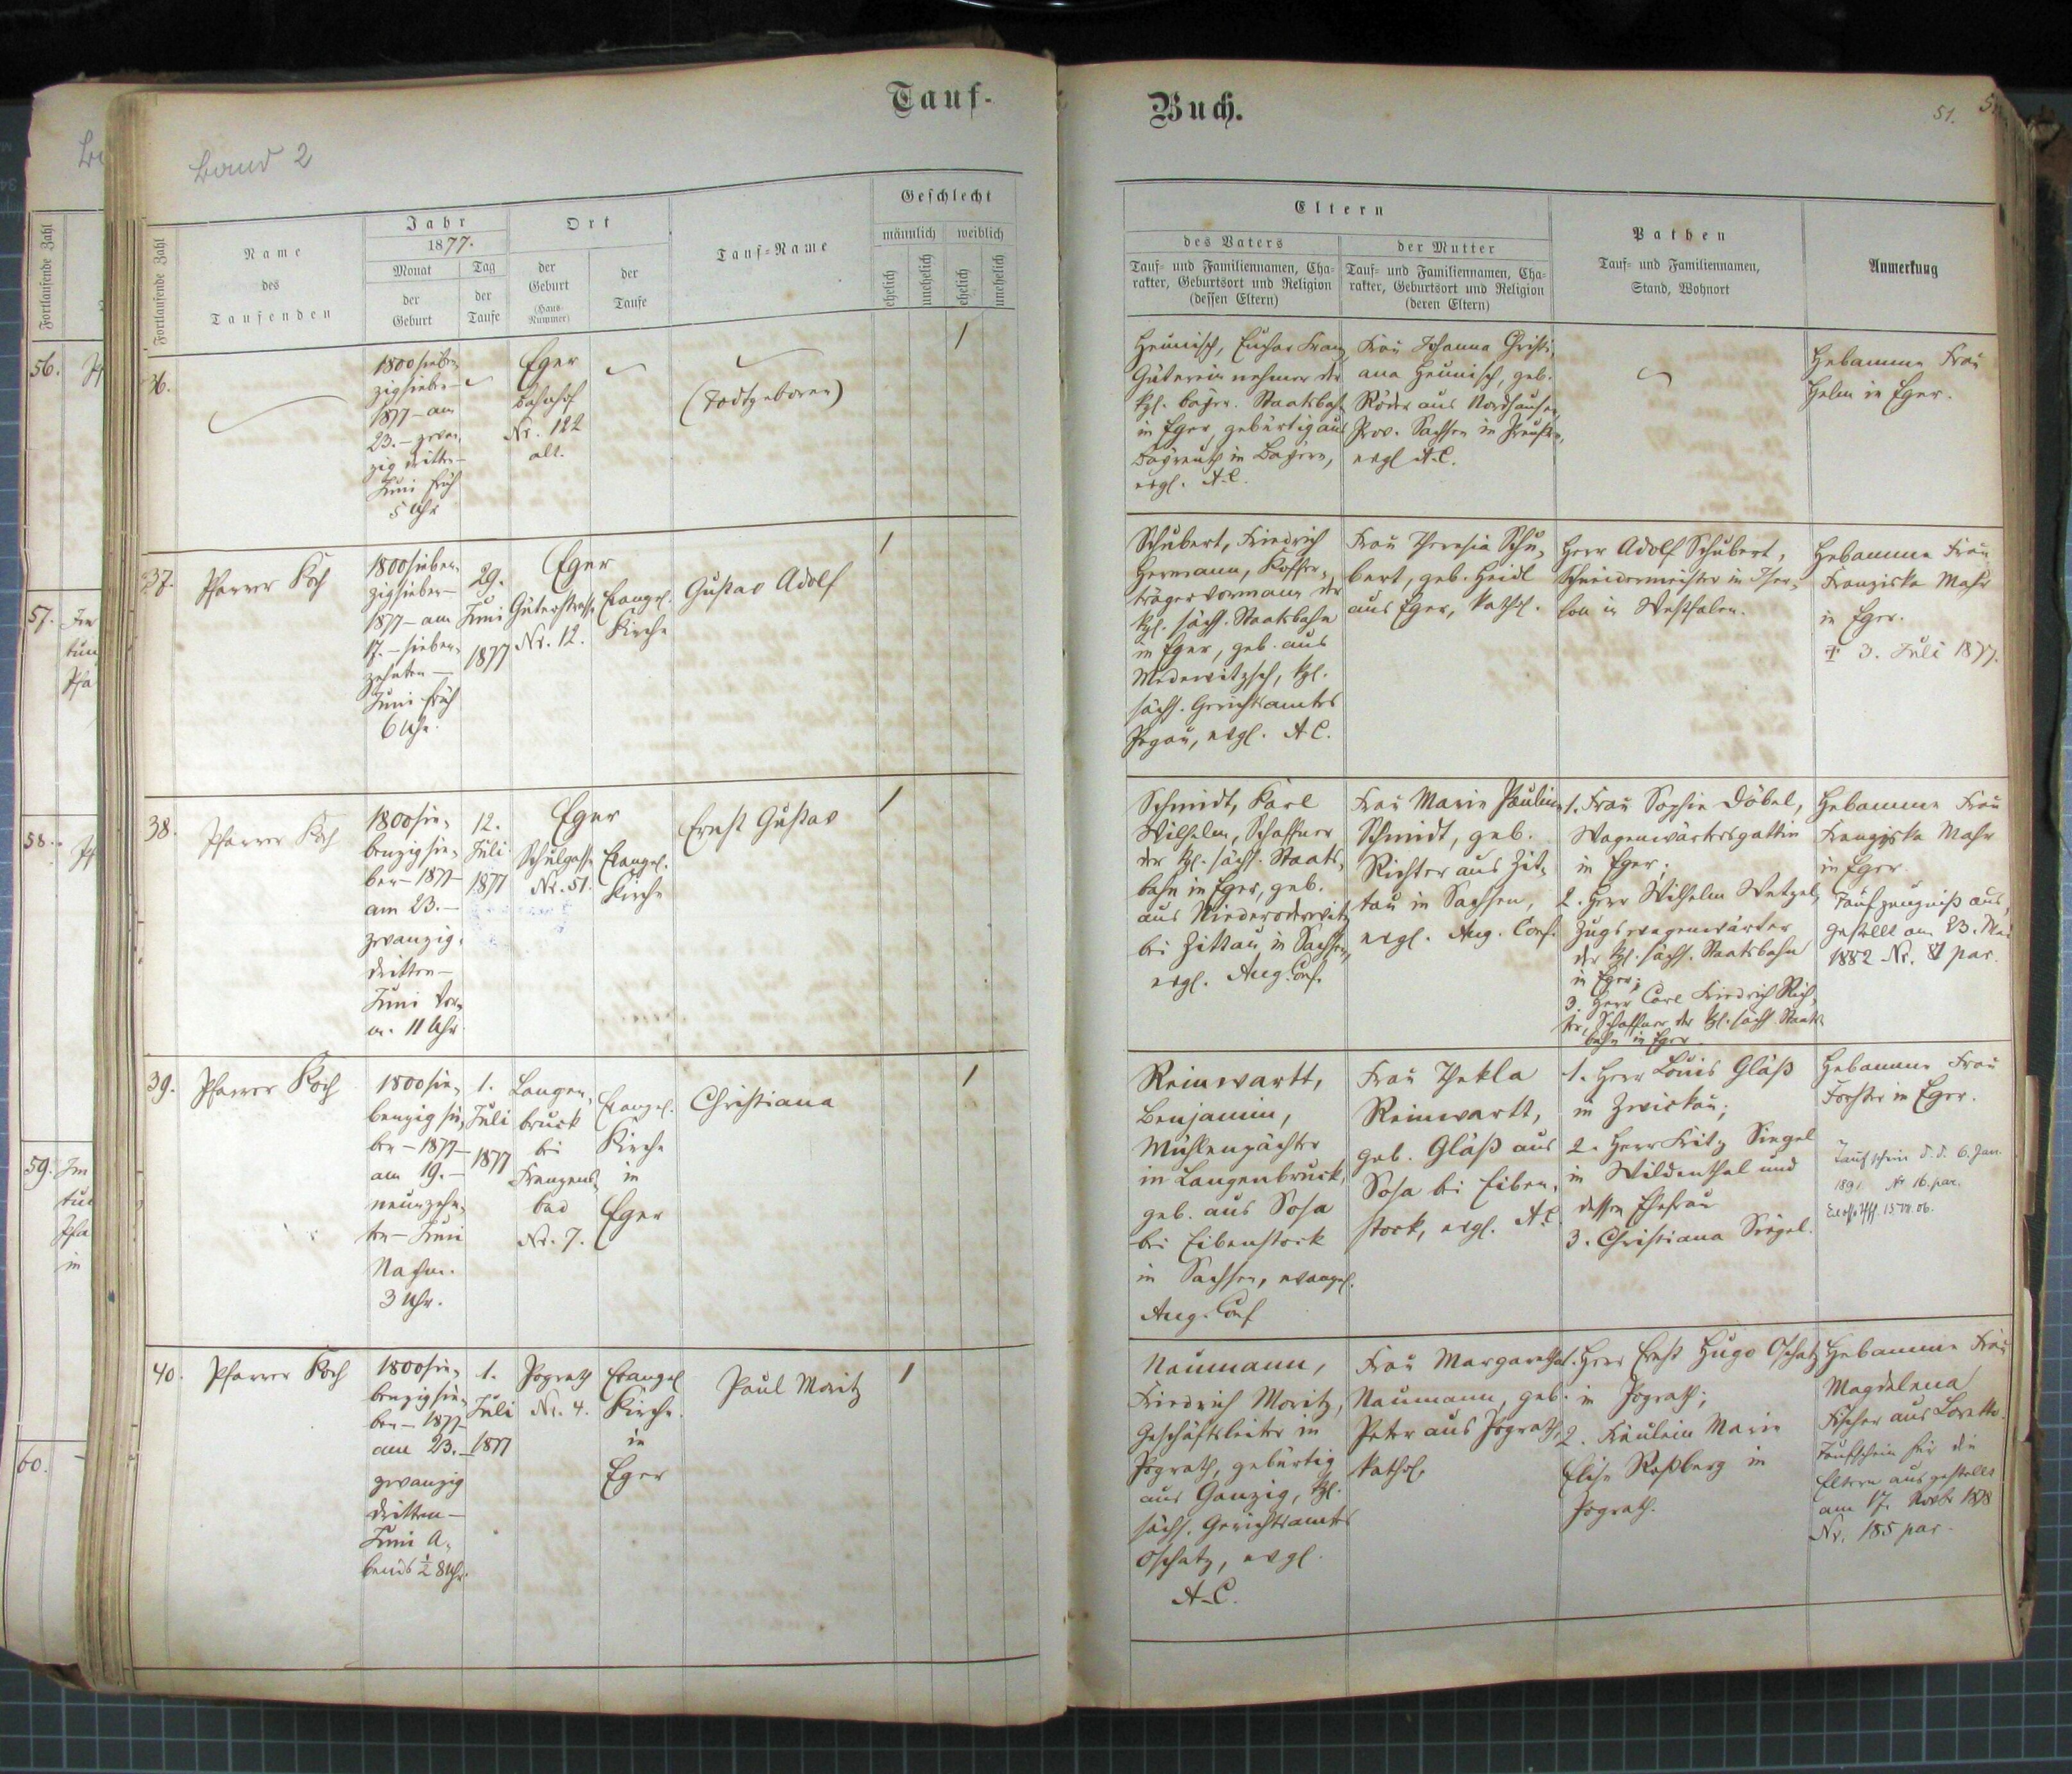 Tauf-
Band 2
Fortlaufende Zahl
Name
des
Taufenden
Jahr
1877.
Monat
der
Geburt
Tag
der
Taufe
Ort
der
Geburt
(Haus-
Nummer)
der
Taufe
Tauf-Name
Geschlecht
männlich
weiblich
ehelich
unehelich
ehelich
unehelich
36.
1800 sieben-
zigsieben-
1877 - am
23. - zwan-
zig dritten -
Juni früh
5 Uhr
Eger
Bahnhof
Nr. 122
alt.
(Todtgeboren)
1
37.
Pfarrer Koch
1800 sieben-
zigsieben-
1877 - am
17. - sieben-
zehnten -
Juni früh
6 Uhr.
29.
Juni
1877
Eger
Güterstrasse
Nr. 12.
Evangel.
Kirche
Gustav Adolf
1
38.
Pfarrer Koch
1800 sie-
benzig sie-
ben - 1877 -
am 23. -
zwanzig-
dritten -
Juni Vor-
m. 11 Uhr.
12.
Juli
1877
Eger
Schulgasse
Nr. 51.
Evangel.
Kirche
Ernst Gustav
1
39.
Pfarrer Koch
1800 sie-
benzig sie-
ben - 1877 -
am 19. -
neunzehn-
ten - Juni
Nachm.
3 Uhr.
1.
Juli
1877
Langen-
bruck
bei
Franzens-
bad
Nr. 7.
Evangel.
Kirche
in
Eger
Christiana
1
40.
Pfarrer Koch
1800 sie-
benzig sie-
ben - 1877 -
am 23. -
zwanzig
dritten -
Juni A-
bends ½ 8 Uhr.
1.
Juli
1877
Pograth
Nr. 4.
Evangel
Kirche
in
Eger
Paul Moritz
1
Buch.
51.
Eltern
des Vaters
Tauf- und Familiennamen, Cha-
rakter, Geburtsort und Religion
(dessen Eltern)
der Mutter
Tauf- und Familiennamen, Cha-
rakter, Geburtsort und Religion
(deren Eltern)
Pathen
Tauf- und Familiennamen,
Stand, Wohnort
Anmerkung
Heunisch, Franz
Gütereinnehmer der
kgl. bayr. Staatsbahn
in Eger, gebürtig aus
Bayreuth in Bayern,
evgl. A. C.
Frau Johanna Christi-
ana Heunisch, geb.
Röder aus Nordhausen
Prov. Sachsen in Preußen,
evgl A. C.
Hebamme Frau
Helm in Eger.
Schubert, Friedrich
Hermann, Koffer-
trägervormann der
kgl. sächs. Staatsbahn
in Eger, geb. aus
Mederwitzsch, kgl.
sächs. Gerichtsamtes
Pegau, evgl. A. C.
Frau Theresia Schu-
bert, geb. Heidl
aus Eger, kathol.
Herr Adolf Schubert,
Schneidermeister in Iser-
lon in Westfalen.
Hebamme Frau
Franziska Mahr
in Eger.
† 3. Juli 1877.
Schmidt, Karl
Wilhelm, Schaffner
der kgl. sächs. Staats-
bahn in Eger, geb.
aus Niederoderwitz
bei Zittau in Sachsen,
evgl. Aug. Conf.
Frau Marie Pauline
Schmidt, geb.
Richter aus Zit-
tau in Sachsen,
evgl. Aug. Conf.
1. Frau Sophie Döbel,
Wagenwärtersgattin
in Eger;
2. Herr Wilhelm Wetzel,
Zugswagenwärter
der kgl. sächs. Staatsbahn
in Eger;
3. Herr Carl Friedrich Rich-
ter, Schaffner der kgl. sächs. Staats-
bahn in Eger.
Hebamme Frau
Franziska Mahr
in Eger.
Taufzeugniß aus-
gestellt am 23. Mai
1882 Nr. 81 par.
Reinwartt,
Benjamin,
Mühlenpächter
in Langenbruck,
geb. aus Sosa
bei Eibenstock
in Sachsen, evangel.
Aug. Conf
Frau Thekla
Reinwartt,
geb. Gläß aus
Sosa bei Eiben-
stock, evgl. A. C.
1. Herr Louis Gläß
in Zwickau;
2. Herr Fritz Siegel
in Wildenthal und
dessen Ehefrau
3. Christiana Siegel.
Hebamme Frau
Forster in Eger.
Taufschein d. d. 6. Jan.
1891 Nr 16. par.
Naumann,
Friedrich Moritz,
Geschäftsleiter in
Pograth, gebürtig
aus Ganzig, kgl.
sächs. Gerichtsamtes
Oschatz, evgl.
A. C.
Frau Margaretha
Naumann, geb.
Peter aus Pograth,
kathol.
1. Herr Ernst Hugo Oschatz
in Pograth;
2. Fräulein Marie
Elise Roßberg in
Pograth.
Hebamme Frau
Magdalena
Fischer aus Loretto.
Taufschein für die
Eltern ausgestellt
am 17. Novbr 1878
Nr. 185 par.
Fortlaufende Zahl
56.
57.
58.
59.
60.